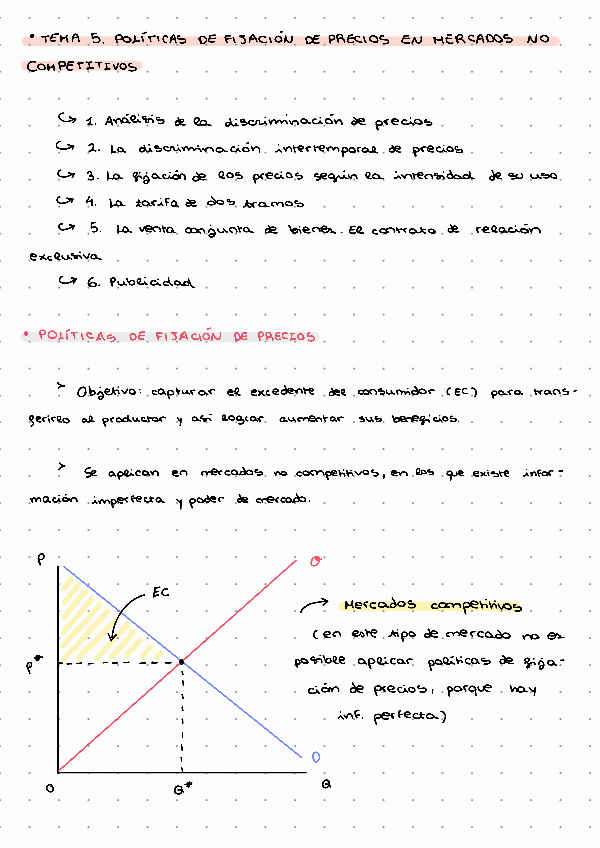 • TEMA 5. POLÍTICAS DE FIJACIÓN DE PRECIOS EN MERCADOS NO
COMPETITIVOS
↪ 1. Análisis de la discriminación de precios
↪ 2. La discriminación intertemporal de precios
↪ 3. La fijación de los precios según la intensidad de su uso
↪ 4. La tarifa de dos tramos
↪ 5. La venta conjunta de bienes. El contrato de relación
exclusiva
↪ 6. Publicidad
• POLÍTICAS DE FIJACIÓN DE PRECIOS
➤ Objetivo: capturar el excedente del consumidor (EC) para trans-
ferirlo al productor y así lograr aumentar sus beneficios.
➤ Se aplican en mercados no competitivos, en los que existe infor-
mación imperfecta y poder de mercado.
P
O
EC
Mercados competitivos
(en este tipo de mercado no es
P*
posible aplicar políticas de fija-
ción de precios, porque hay
inf. perfecta)
D
O
Q*
Q